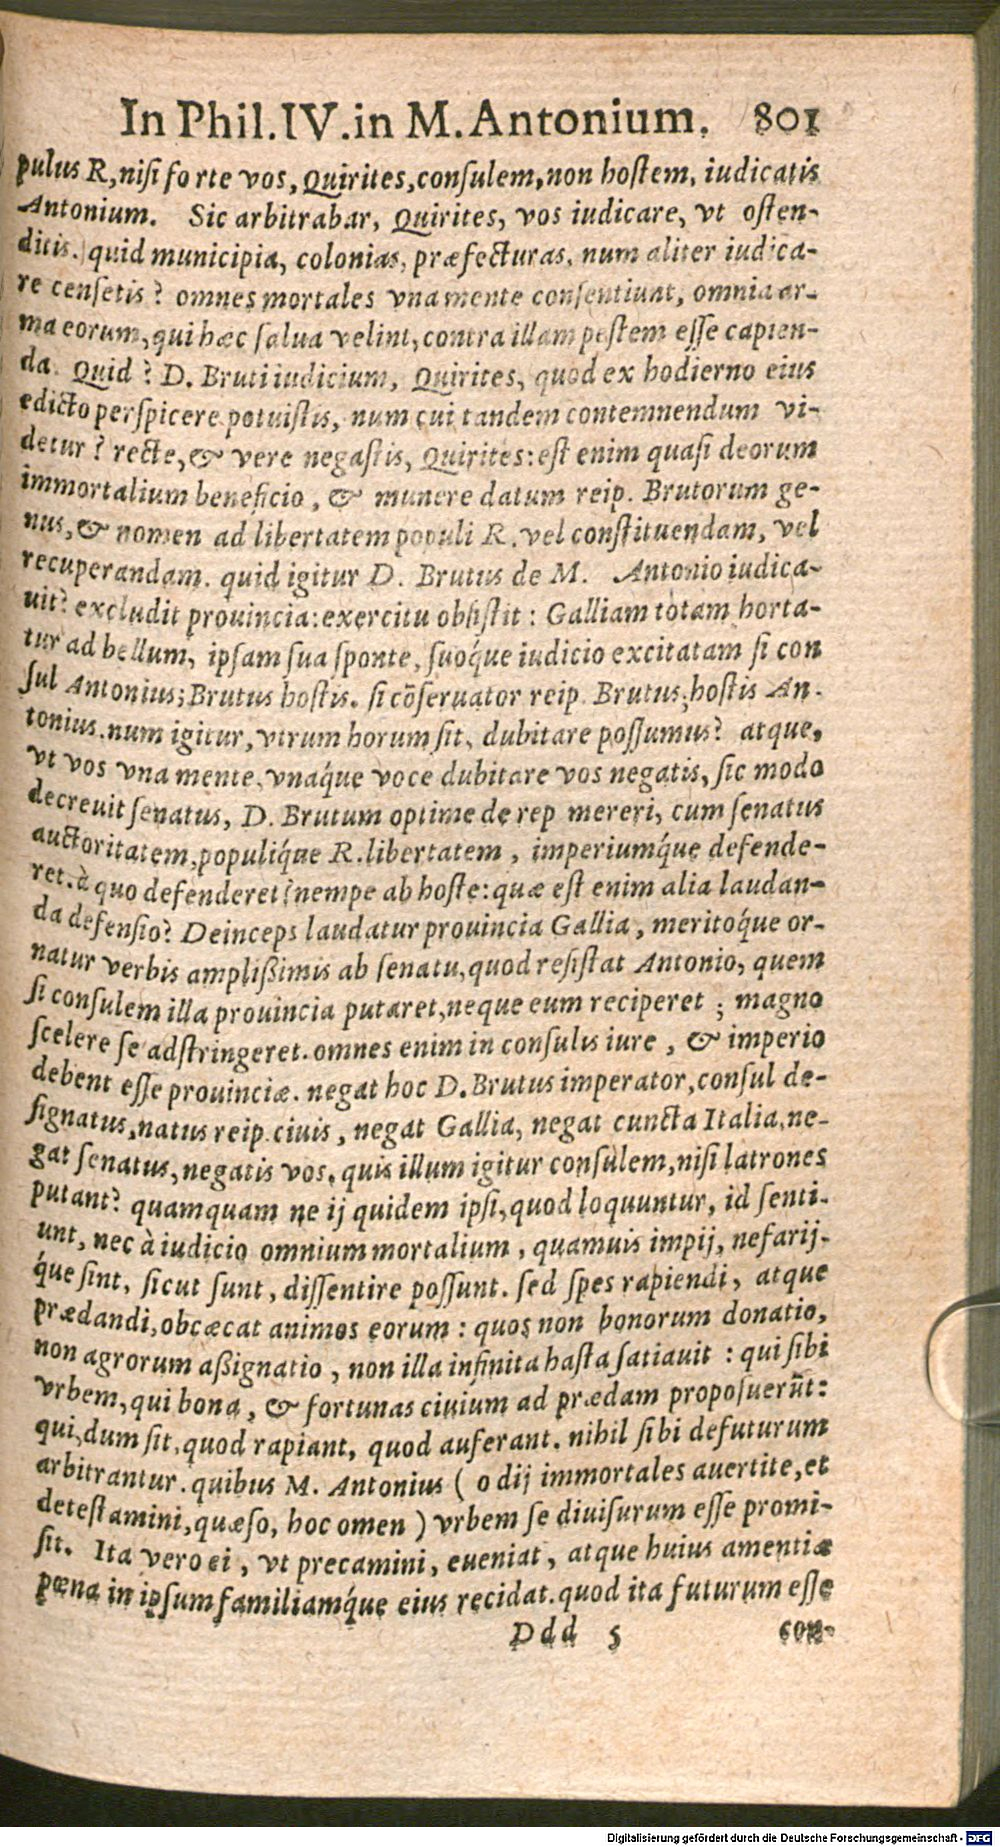 In Phil. IV. in M. Antonium. 801
pulus R, niſi forte vos, Quirites, conſulem, non hoſtem, iudicatis
Antonium. Sic arbitrabar, Quirites, vos iudicare, vt oſten-
ditis. quid municipia, colonias, præfecturas, num aliter iudica-
re cenſetis? omnes mortales vna mente conſentiunt, omnia ar-
ma eorum, qui hæc ſalua velint, contra illam peſtem eſſe capien-
da. Quid? D. Bruti iudicium, Quirites, quod ex hodierno eius
edicto perſpicere potuiſtis, num cui tandem contemnendum vi-
detur? recte, & vere negaſtis, Quirites: eſt enim quaſi deorum
immortalium beneficio, & munere datum reip. Brutorum ge-
nus, & nomen ad libertatem populi R. vel conſtituendam, vel
recuperandam. quid igitur D. Brutus de M. Antonio iudica-
uit? excludit prouincia: exercitu obſiſtit: Galliam totam horta-
tur ad bellum, ipſam ſua ſponte, ſuoq́ue iudicio excitatam ſi con
ſul Antonius; Brutus hoſtis. ſi cōſeruator reip. Brutus; hoſtis An-
tonius. num igitur, vtrum horum ſit, dubitare poſſumus? atque,
vt vos vna mente, vnaq́ue voce dubitare vos negatis, ſic modo
decreuit ſenatus, D. Brutum optime de rep mereri, cum ſenatus
auctoritatem, populiq́ue R. libertatem, imperiumq́ue defende-
ret. à quo defenderet? nempe ab hoſte: quæ eſt enim alia laudan-
da defenſio? Deinceps laudatur prouincia Gallia, meritoq́ue or-
natur verbis ampliſſimis ab ſenatu, quod reſiſtat Antonio, quem
ſi conſulem illa prouincia putaret, neque eum reciperet; magno
ſcelere ſe adſtringeret. omnes enim in conſulis iure, & imperio
debent eſſe prouinciæ. negat hoc D. Brutus imperator, conſul de-
ſignatus, natus reip. ciuis, negat Gallia, negat cuncta Italia, ne-
gat ſenatus, negatis vos. quis illum igitur conſulem, niſi latrones
putant? quamquam ne ij quidem ipſi, quod loquuntur, id ſenti-
unt, nec à iudicio omnium mortalium, quamuis impij, nefarij-
q́ue ſint, ſicut ſunt, diſſentire poſſunt. ſed ſpes rapiendi, atque
prædandi, obcæcat animos eorum: quos non bonorum donatio,
non agrorum aſſignatio, non illa infinita haſta ſatiauit: qui ſibi
vrbem, qui bona, & fortunas ciuium ad prædam propoſuerūt:
qui, dum ſit, quod rapiant, quod auferant. nihil ſibi defuturum
arbitrantur. quibus M. Antonius (o dij immortales auertite, et
deteſtamini, quæſo, hoc omen) vrbem ſe diuiſurum eſſe promi-
ſit. Ita vero ei, vt precamini, eueniat, atque huius amentiæ
pœna in ipſum familiamq́ue eius recidat. quod ita futurum eſſe
Ddd 5 con-
Digitalisierung gefördert durch die Deutsche Forschungsgemeinschaft - DFG